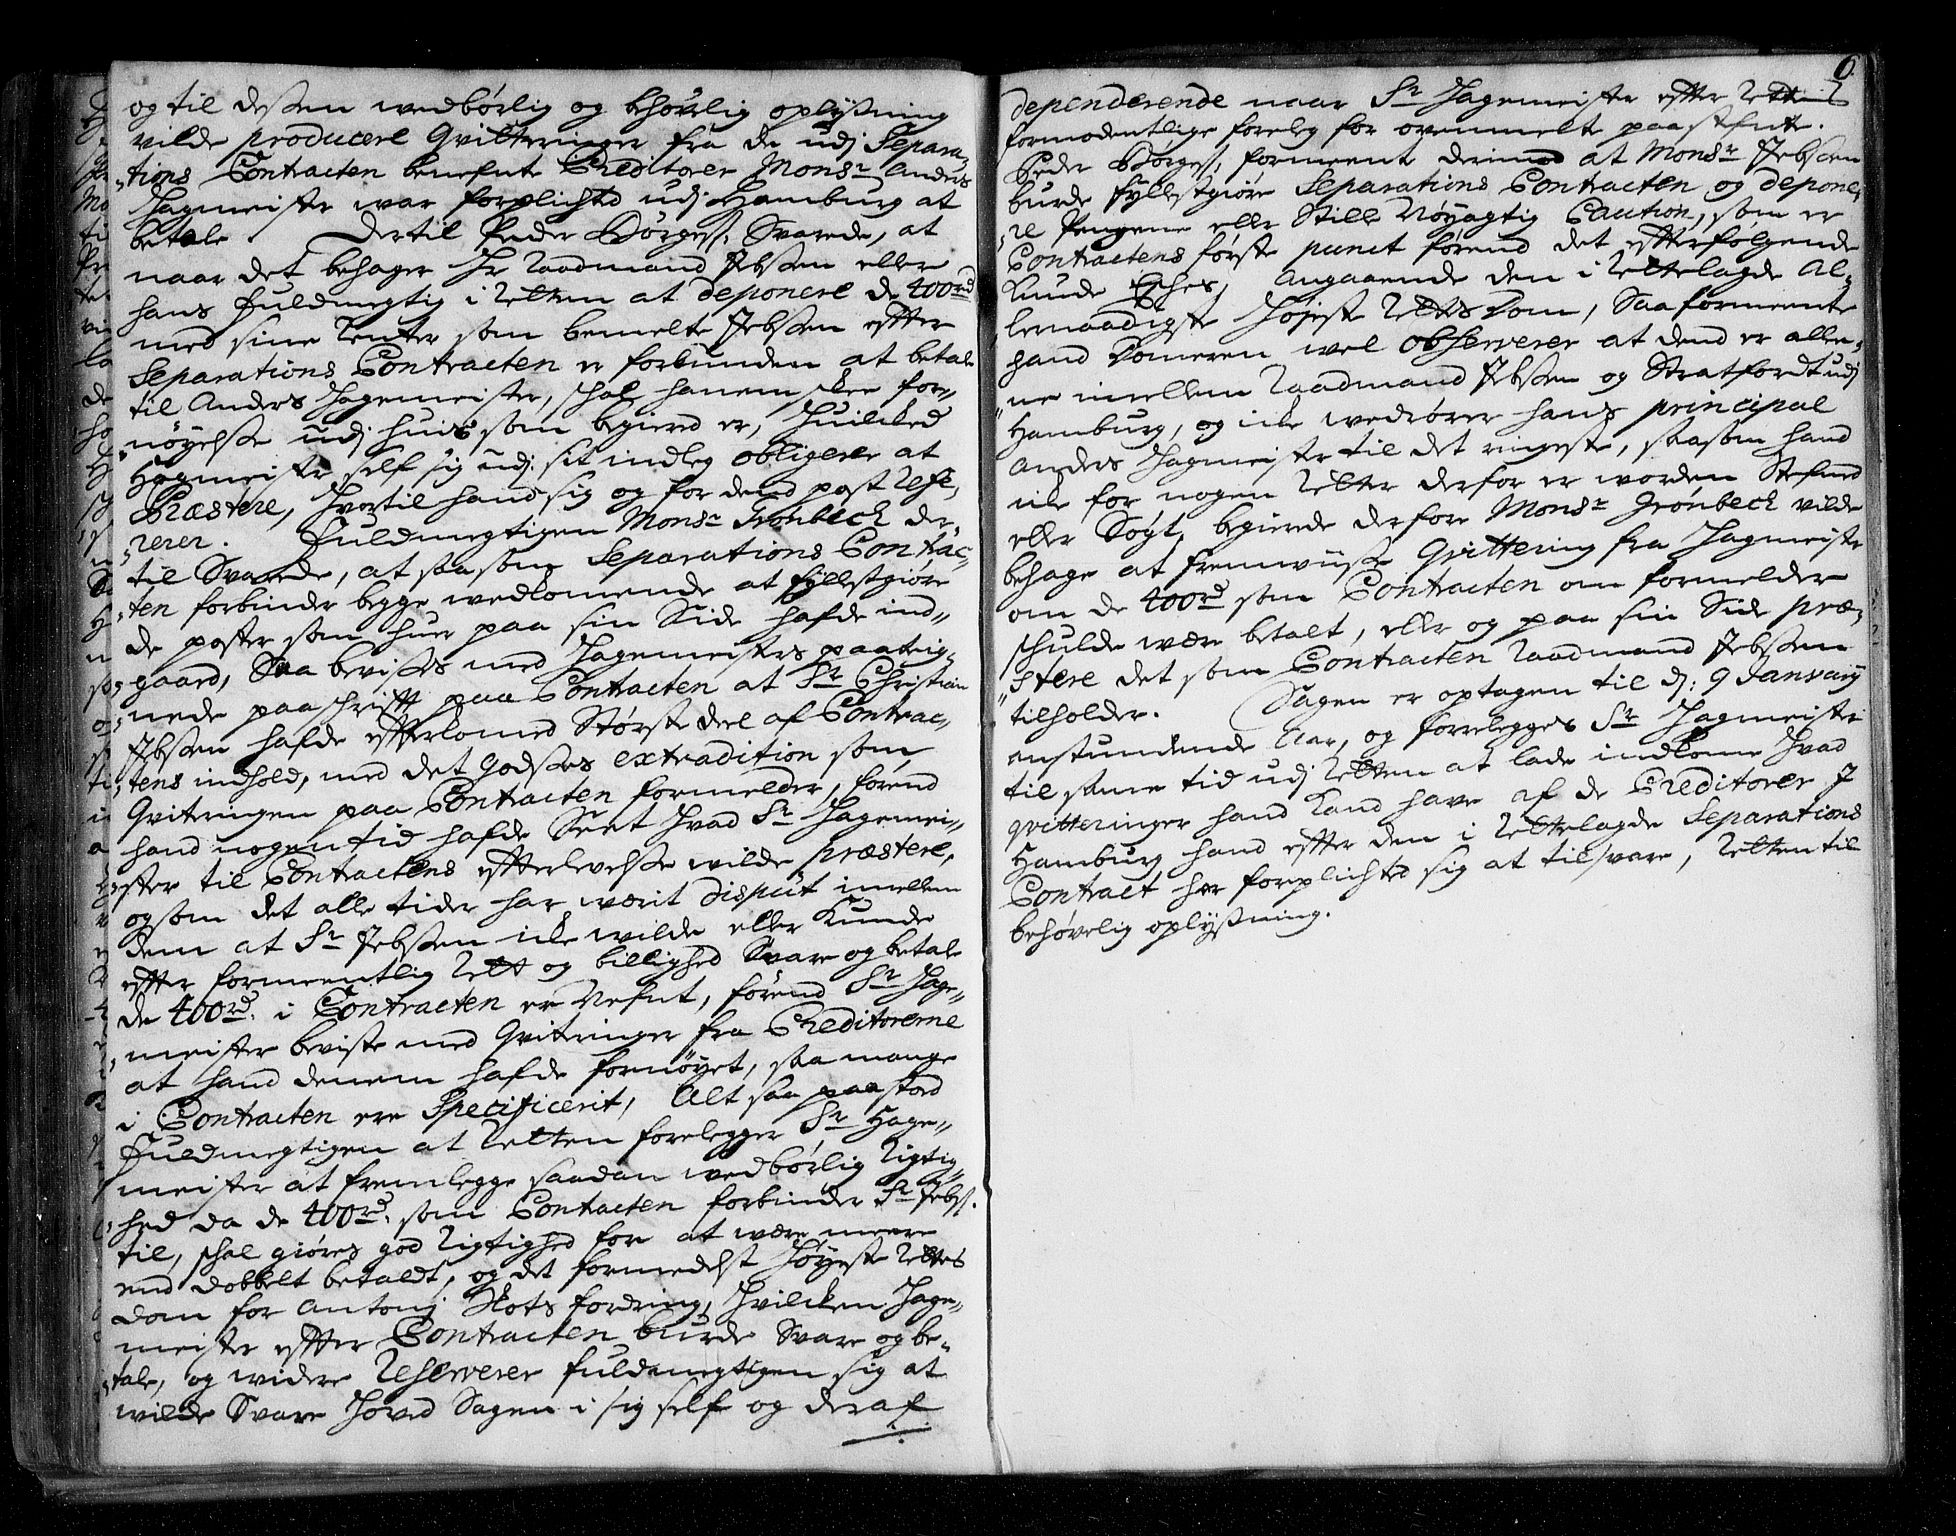 og til desßen wedbørlig og behøvelig oplysning
vilde producere Qvitteringer fra de udj Separa„
„tions Contracten benefnte Creditorer Monsr Anders
Hagmeister war forplichted udj Hamburg at
betale. Dertil Peder Børges: Svarede, at
naar det behager Hr Raadmand Jebsen eller
hans fuldmegtig i Retten at deponere de 400rd
med sine Renter som bemelte Jebsen efter
Separations Contracten er forbunden at betale
til Anders Hagemeister, schal hannem skee for„
„nøyelse udj huis som begiered er, Huilcked
Hagmeister self sig udj sit indleg obligerer at
Præstere, Hvortil hand sig og for dend post Refe„
„rerer. Fuldmegtigen Monsr Grønbeck der„
til Svarede, at saasom Separations Contrac„
„ten forbinder begge wedkomende at fyllestgiøre
de poster som huer paa sin Side hafde ind„
gaaed, Saa bevises med Hagemeisters paateig„
nede paaschrifft paa Contracten at Sr Christian
Jebsen hafde efterkomed Største deel af Contrac„
„tens indhold, med det Godses extradition som
Qvitringen paa Contracten formelder, førend
hand nogen tid hafde Seet hvad Sr Hagemei„
ster til Contractens efterlevelse wilde præstere,
og som det alle tider har wærit Disput imellem
dem at Sr Jebsen icke wilde eller Kunde
efter formeentlig Rett og billighed Svare og betale
de 400rd. i Contracten er Nefnt, førend Sr Hage„
meister beviste med Qvitringer fra Creditorerne
at hand dennem hafde fornøyet, saa mange
i Contracten ere Specificerit, Alt saa paastod
Fuldmegtigen at Retten forelegger Sr Hage„
meister at fremlegge saadan wedbørlig Rigtig„
hed da de 400rd. som Contracten forbinder Sr Jebs:
til, schal giøres god Rigtighed for at være meere
end dobbelt betaldt, og det formedelst Høyeste Rettes
dom for Antonj Skots fordring, Hvilcken Hage„
meister efter Contracten burde Svare og be„
„tale, og widere Reserverer fuldmegtigen sig at
wilde Svare Hoved Sagen i sig self og deraf
6.
dependerende naar Sr Hagemeister efter Rettens
formodentlige foreleg for ovenmelte paastefnte.
Peder Børges: formeente derimod at Monsr Jebsen
burde fyllestgiøre Separations Contracten og depone„
„re Pengene eller Stille Nøyagtig Caution, som er
Contractens første punct førend det efterfølgende
Kunde Esches, Angaaende den i Rettelagde Al„
lernaadigste Høyeste Rettes Dom, Saa formeente
hand Domeren wel observerer at dend er alle„
„ne imellem Raadmand Jebsen og Stratfordt udj
Hamburg, og icke wedrører hans principal
Anders Hagmeister til det ringeste, saasom hand
icke for nogen Retter derfor er worden Stefned
eller Søgt, begierede derfore Monsr Grønbeck vilde
behage at fremwiise Qvittering fra Hagmeister
om de 400rd som Contracten om formelder
schulde være betalt, eller og paa sin Side præ„
„stere det som Contracten Raadmand Jebsen
tilholder. Sagen er optagen til d: 9 January
anstundende Aar, og forrelegges Sr Hagmeister
til same tid udj Retten at lade indkome Hvad
qvitteringer hand Kand have af de Creditorer J
Hamburg hand efter den i Rettelagde Separations
Contract har forplichted sig at tilsvare, Retten til
behøvelig oplysning.